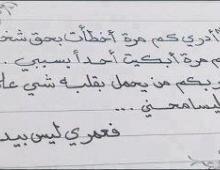 أدري كم مرة أخطأت بحق شخ
كم مرة أبكيت أحداً بسببي ..
ربكم من يحمل بقلبه شي عل
ليسامحني ...
فعمري ليس بيد